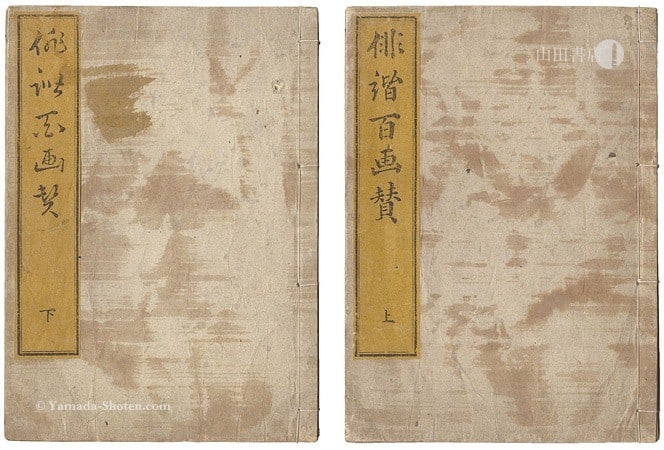 俳諧百画賛
上
俳諧百画賛
下
山田書店
© Yamada-Shoten.com